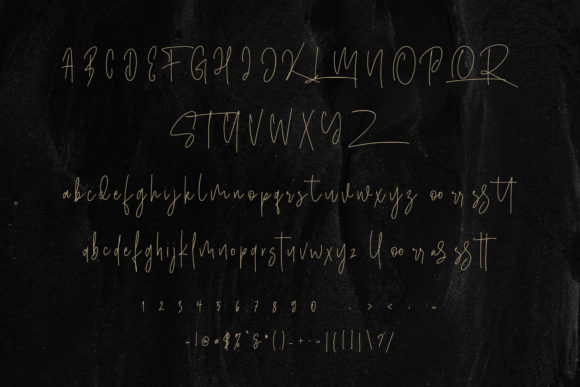 A B C D E F G H I J K L M N O P Q R
S T U V W X Y Z
a b c d e f g h i j k l m n o p q r s t u v w x y z oo rr ss tt
a b c d e f g h i j k l m n o p q r s t u v w x y z ll oo rr as ss tt
1 2 3 4 5 6 7 8 9 0 . > < : ~
~ ! @ # $ % ^ & * ( ) _ + - = | { [ ] | \ ? /